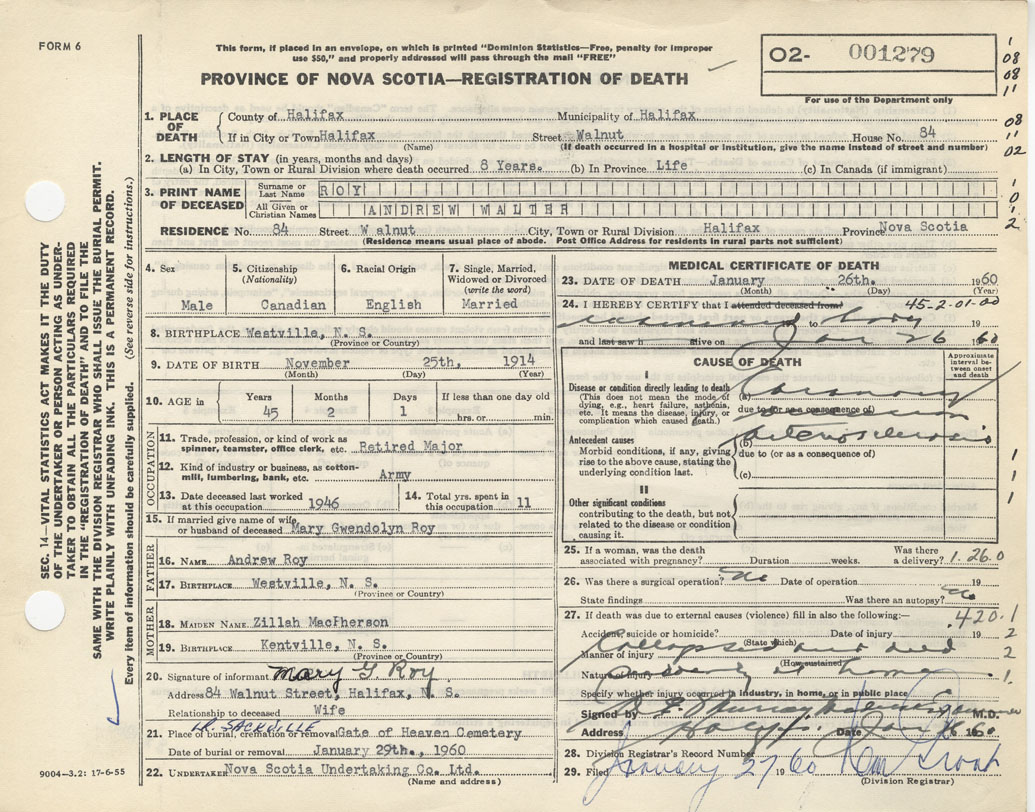 FORM 6
This form, if placed in an envelope, on which is printed "Dominion Statistics—Free, penalty for improper
use $50," and properly addressed will pass through the mail "FREE"
PROVINCE OF NOVA SCOTIA—REGISTRATION OF DEATH
02- 001279
For use of the Department only
1
08
08
11
08
11
02
1
0
1
2
1. PLACE OF DEATH
County of Halifax Municipality of Halifax
If in City or Town Halifax Street Walnut House No. 84
(Name) (If death occurred in a hospital or institution, give the name instead of street and number)
2. LENGTH OF STAY (in years, months and days)
(a) In City, Town or Rural Division where death occurred 8 Years. (b) In Province Life (c) In Canada (if immigrant)
3. PRINT NAME OF DECEASED
Surname or Last Name ROY
All Given or Christian Names ANDREW WALTER
RESIDENCE No. 84 Street Walnut City, Town or Rural Division Halifax Province Nova Scotia
(Residence means usual place of abode. Post Office Address for residents in rural parts not sufficient)
4. Sex
Male
5. Citizenship
(Nationality)
Canadian
6. Racial Origin
English
7. Single, Married,
Widowed or Divorced
(write the word)
Married
8. BIRTHPLACE Westville, N. S.
(Province or Country)
9. DATE OF BIRTH November 25th, 1914
(Month) (Day) (Year)
10. AGE in
Years Months Days If less than one day old
45 2 1 hrs. or min.
OCCUPATION
11. Trade, profession, or kind of work as
spinner, teamster, office clerk, etc. Retired Major
12. Kind of industry or business, as cotton-
mill, lumbering, bank, etc. Army
13. Date deceased last worked
at this occupation 1946
14. Total yrs. spent in
this occupation 11
15. If married give name of wife
or husband of deceased Mary Gwendolyn Roy
FATHER
16. NAME Andrew Roy
17. BIRTHPLACE Westville, N. S.
(Province or Country)
MOTHER
18. MAIDEN NAME Zillah MacPherson
19. BIRTHPLACE Kentville, N. S.
(Province or Country)
20. Signature of informant Mary G. Roy
Address 84 Walnut Street, Halifax, N. S.
Relationship to deceased Wife
LR. SACKVILLE
21. Place of burial, cremation or removal Gate of Heaven Cemetery
Date of burial or removal January 29th., 1960
22. UNDERTAKER Nova Scotia Undertaking Co. Ltd.
(Name and address)
MEDICAL CERTIFICATE OF DEATH
23. DATE OF DEATH January 26th. 1960
(Month) (Day) (Year)
24. I HEREBY CERTIFY that I attended deceased from 45-2-01-00
examined to body 19
and last saw h alive on Jan 26 1960
CAUSE OF DEATH
Approximate
interval be-
tween onset
and death
I
Disease or condition directly leading to death
(This does not mean the mode of
dying, e.g., heart failure, asthenia,
etc. It means the disease, injury, or
complication which caused death.)
(a) Coronary
due to (or as a consequence of)
Antecedent causes
Morbid conditions, if any, giving
rise to the above cause, stating the
underlying condition last.
(b) arteriosclerosis
due to (or as a consequence of)
(c)
1
1
1
II
Other significant conditions
contributing to the death, but not
related to the disease or condition
causing it.
25. If a woman, was the death
associated with pregnancy? Duration weeks. Was there
a delivery? 1.26.0
26. Was there a surgical operation? no Date of operation 19
State findings Was there an autopsy? no
27. If death was due to external causes (violence) fill in also the following:— 420.1
Accident, suicide or homicide? Date of injury 19 2
(State which)
Manner of injury Collapsed and died 2
(How sustained)
Nature of injury suddenly at home 1.
Specify whether injury occurred in industry, in home, or in public place
Signed by M.D.
Address Halifax Date 1960
28. Division Registrar's Record Number
29. Filed January 27 1960
(Division Registrar)
SEC. 14—VITAL STATISTICS ACT MAKES IT THE DUTY
OF THE UNDERTAKER OR PERSON ACTING AS UNDER-
TAKER TO OBTAIN ALL THE PARTICULARS REQUIRED
IN THE "REGISTRATION OF DEATH" AND TO FILE THE
SAME WITH THE DIVISION REGISTRAR WHO SHALL ISSUE THE BURIAL PERMIT.
WRITE PLAINLY WITH UNFADING INK. THIS IS A PERMANENT RECORD.
Every item of information should be carefully supplied. (See reverse side for instructions.)
9004—3.2: 17-6-55